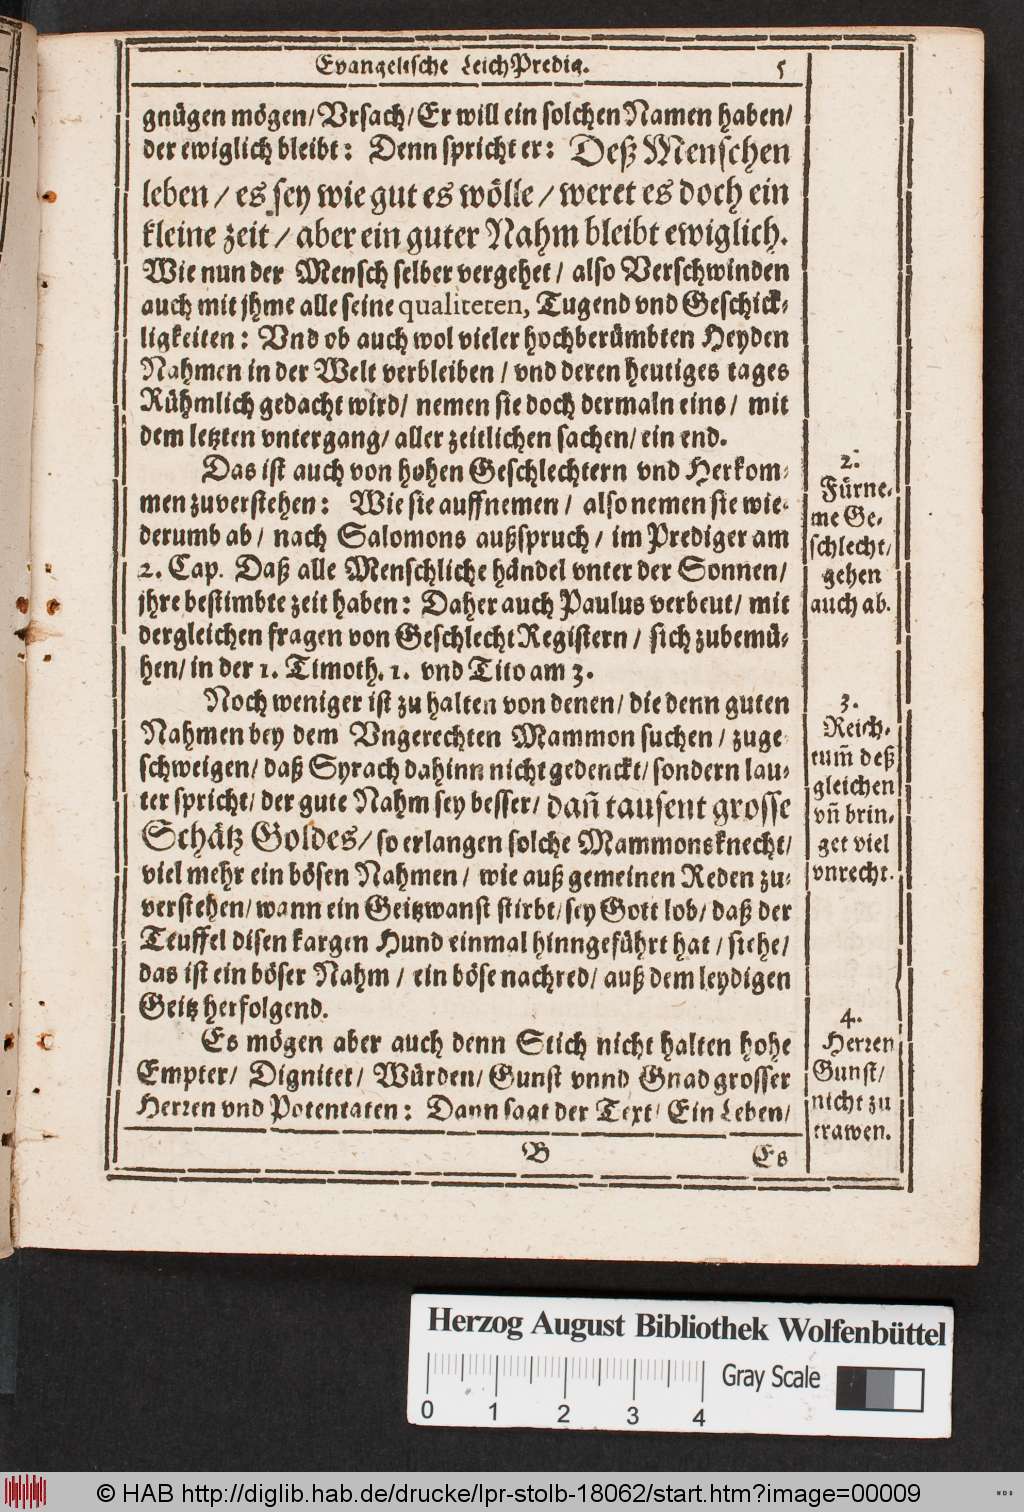 Evangelische LeichPredig. 5
gnügen mögen/ Vrsach/ Er will ein solchen Namen haben/
der ewiglich bleibt: Denn spricht er: Deß Menschen
leben / es sey wie gut es wölle / weret es doch ein
kleine zeit / aber ein guter Nahm bleibt ewiglich.
Wie nun der Mensch selber vergehet / also Verschwinden
auch mit jhme alle seine qualiteten, Tugend vnd Geschick-
ligkeiten: Vnd ob auch wol vieler hochberümbten Heyden
Nahmen in der Welt verbleiben / vnd deren heutiges tages
Rühmlich gedacht wird/ nemen sie doch dermaln eins / mit
dem letzten vntergang/ aller zeitlichen sachen/ ein end.
Das ist auch von hohen Geschlechtern vnd Herkom-
men zuverstehen: Wie sie auffnemen / also nemen sie wie-
derumb ab / nach Salomons außspruch / im Prediger am
2. Cap. Daß alle Menschliche händel vnter der Sonnen/
jhre bestimbte zeit haben: Daher auch Paulus verbeut/ mit
dergleichen fragen von Geschlecht Registern / sich zubemü-
hen/ in der 1. Timoth. 1. vnd Tito am 3.
Noch weniger ist zu halten von denen/ die denn guten
Nahmen bey dem Vngerechten Mammon suchen / zuge
schweigen/ daß Syrach dahinn nicht gedenckt/ sondern lau-
ter spricht/ der gute Nahm sey besser/ dañ tausent grosse
Schätz Goldes/ so erlangen solche Mammonsknecht/
viel mehr ein bösen Nahmen / wie auß gemeinen Reden zu-
verstehen/ wann ein Geitzwanst stirbt/ sey Gott lob/ daß der
Teuffel disen kargen Hund einmal hinngeführt hat / siehe/
das ist ein böser Nahm / ein böse nachred/ auß dem leydigen
Geitz herfolgend.
Es mögen aber auch denn Stich nicht halten hohe
Empter/ Dignitet/ Würden/ Gunst vnnd Gnad grosser
Herren vnd Potentaten: Dann sagt der Text/ Ein Leben/
B Es
2.
Fürne-
me Ge-
schlecht/
gehen
auch ab.
3.
Reich-
tum̃ deß
gleichen
vñ brin-
get viel
vnrecht.
4.
Herren
Gunst/
nicht zu
trawen.
Herzog August Bibliothek Wolfenbüttel
Gray Scale
0 1 2 3 4
© HAB http://diglib.hab.de/drucke/lpr-stolb-18062/start.htm?image=00009